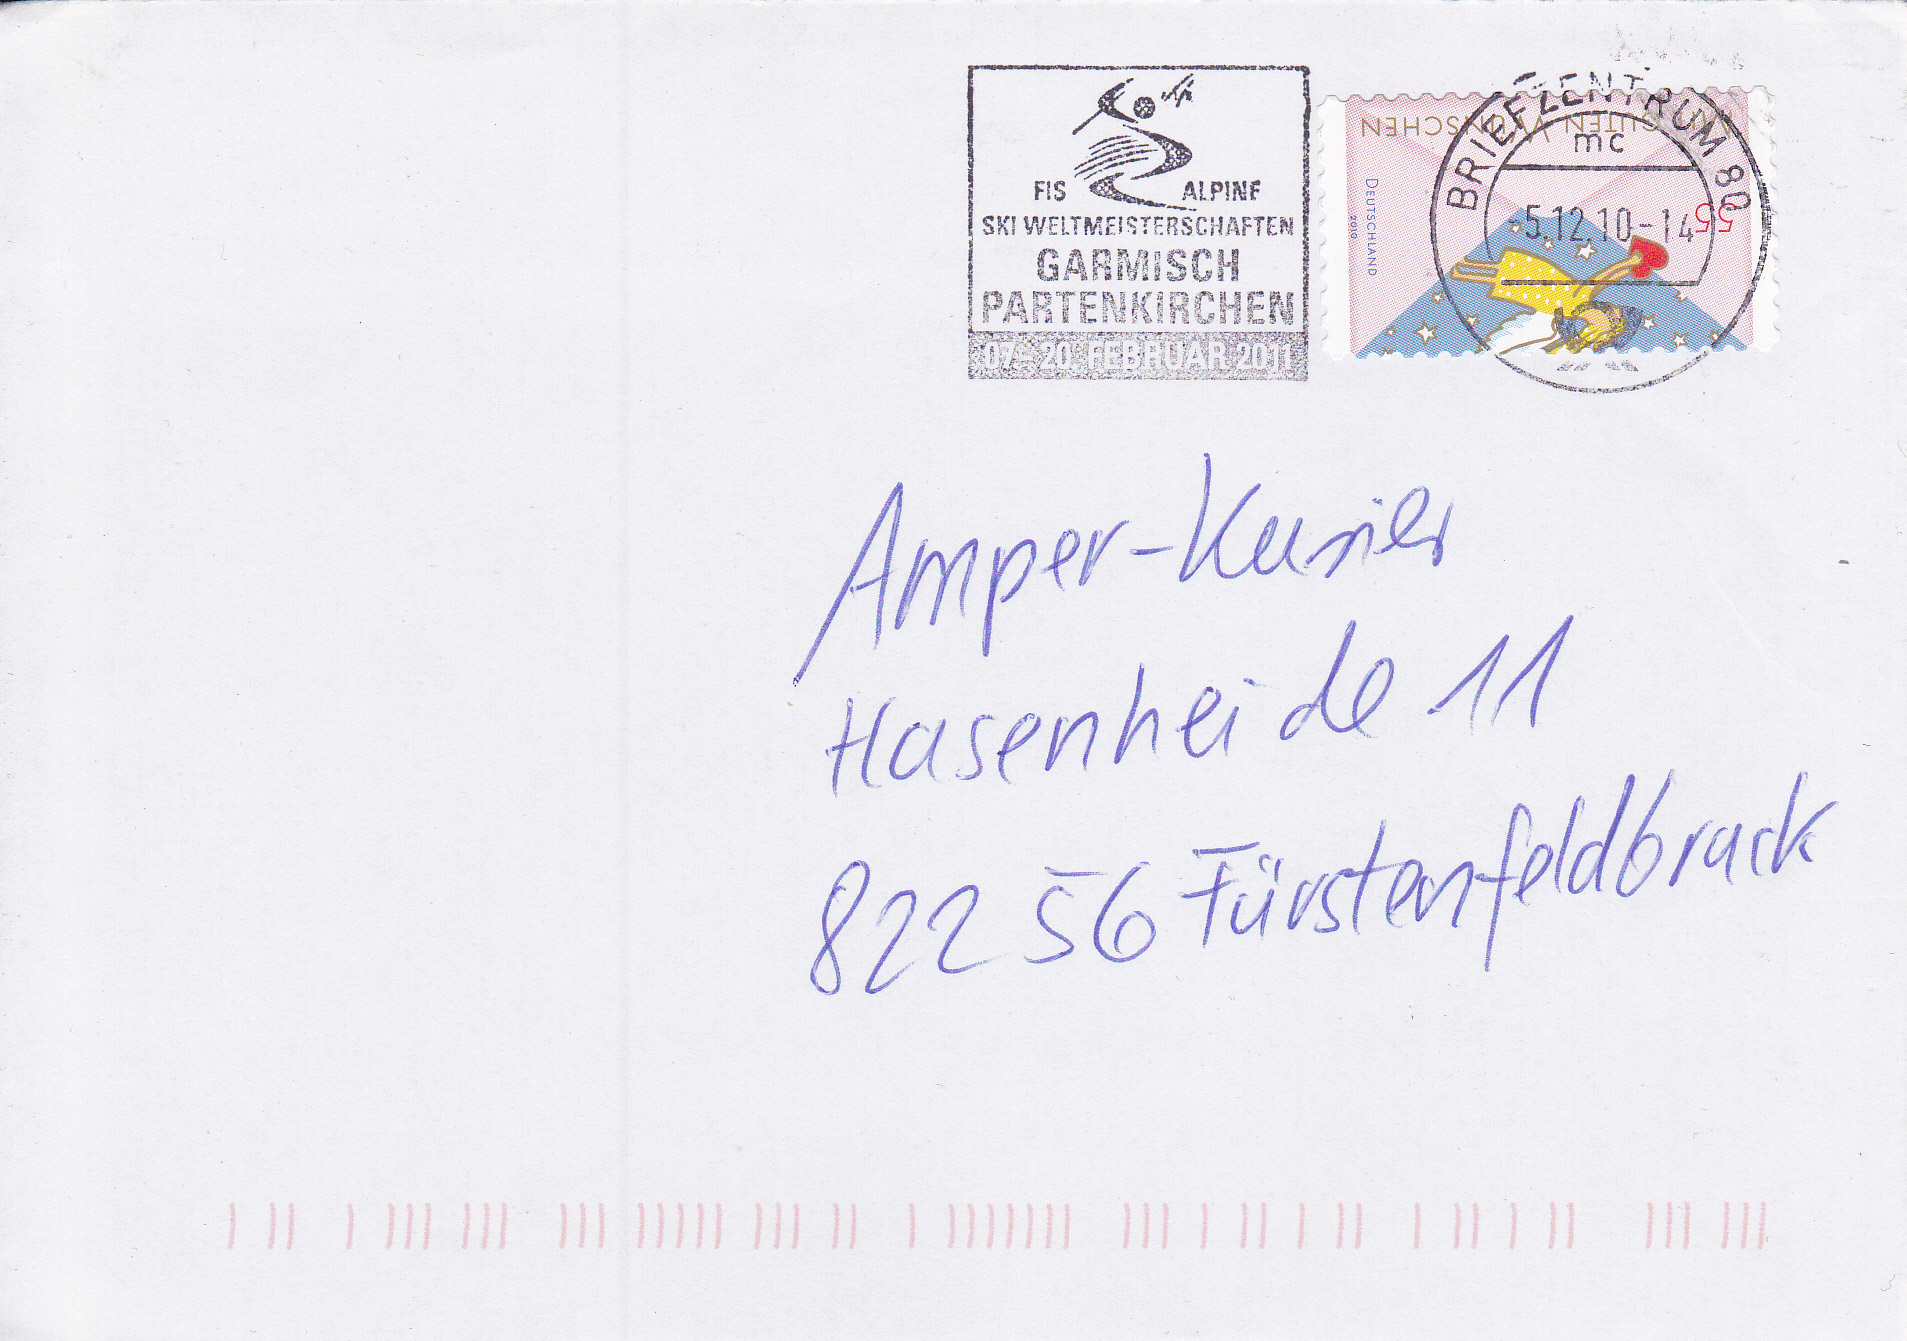 FIS ALPINE
SKI WELTMEISTERSCHAFTEN
GARMISCH
PARTENKIRCHEN
07.-20. FEBRUAR 2011
BRIEFZENTRUM 80
mc
-5.12.10-14
GUTEN WÜNSCHEN
DEUTSCHLAND
2010
55
Amper-Kurier
Hasenheide 11
82256 Fürstenfeldbruck